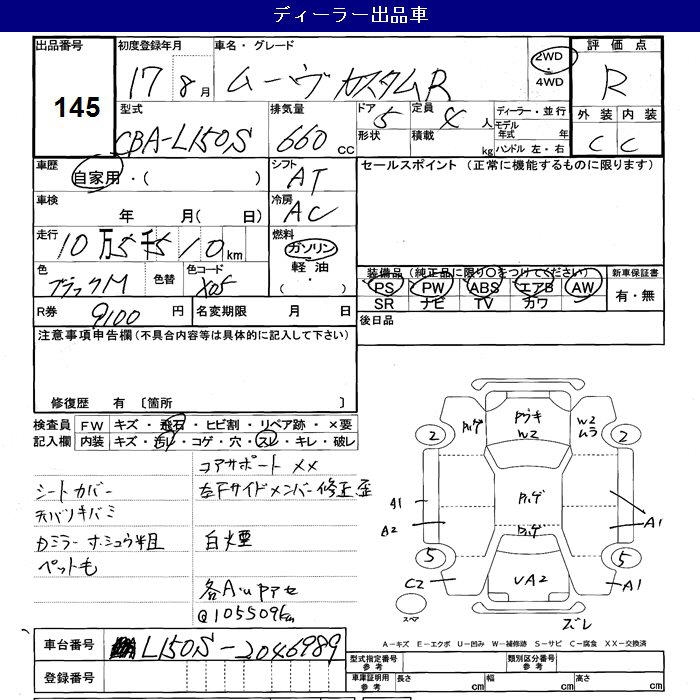 ディーラー出品車
出品番号 145
初度登録年月 17 8月
車名・グレード ムーヴ カスタムR
2WD ・ 4WD
評価点 R
外装 内装
C C
型式 CBA-L150S
排気量 660 CC
ドア 5 定員 4 人
形状 積載 kg
ディーラー・並行
モデル年式 年
ハンドル 左・右
車歴 自家用・( )
シフト AT
セールスポイント (正常に機能するものに限ります)
車検 年 月( 日)
冷房 AC
走行 10万5千510km
燃料 ガソリン 軽油 ( ・ )
色 ブラックM 色替
色コード X05
装備品 (純正品に限り○をつけてください)
新車保証書 有・無
PS PW ABS エアB AW
SR ナビ TV カワ
R券 9100 円
名変期限 月 日
後日品
注意事項申告欄 (不具合内容等は具体的に記入して下さい)
修復歴 有 〔箇所 〕
検査員記入欄
FW キズ・飛石・ヒビ割・リペア跡・×要
内装 キズ・汚レ・コゲ・穴・スレ・キレ・破レ
コアサポート XX
シートカバー
左Fサイドメンバー修正歪
天バリキバミ
カミラー ホシュウ半組
白煙
ペット毛
@105509km
ハゲ
W2
W2
ムラ
2
2
ハゲ
A1
A2
ハゲ
A1
5
5
C2
UA2
A1
スペア
ズレ
A-キズ E-エクボ U-凹み W-補修跡 S-サビ C-腐食 XX-交換済
車台番号 L150S-2046989
登録番号
型式指定番号 参考
類別区分番号 参考
車庫証明用 参考
長さ cm 幅 cm 高さ cm